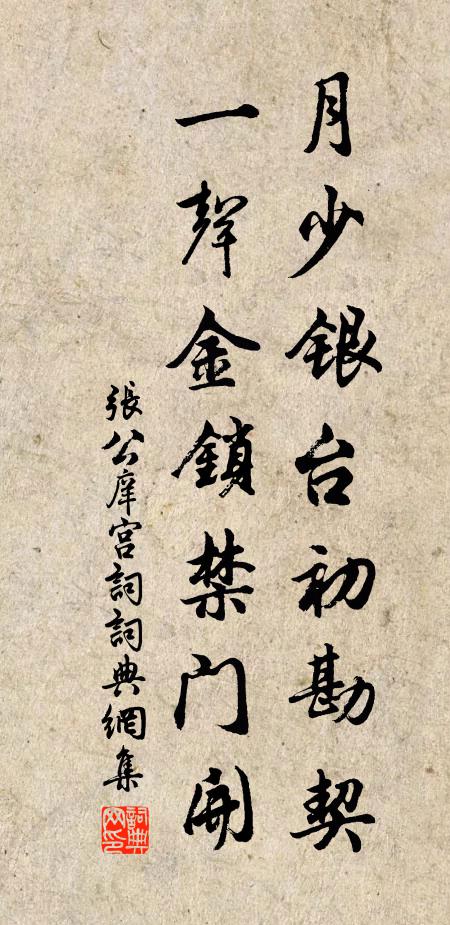 月少銀台初勘契
一聲金鎖禁門開
張公庠宮詞詞典網集
詞典
网印